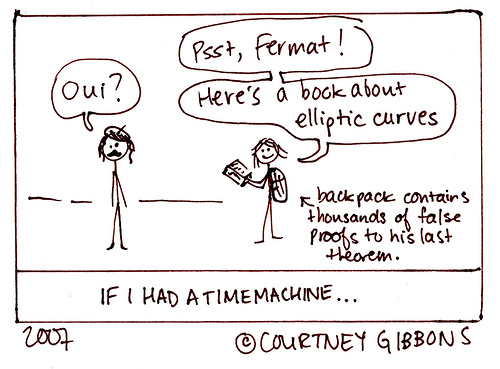 Psst, Fermat!
Oui?
Here's a book about
elliptic curves
backpack contains
thousands of false
proofs to his last
theorem.
IF I HAD A TIME MACHINE...
2007
© COURTNEY GIBBONS